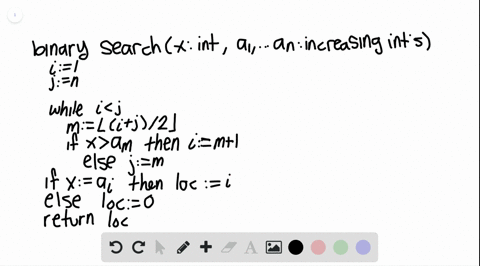 binary search(x: int, a1,... an: increasing ints)
i:=1
j:=n
while i<j
m:=⌊(i+j)/2⌋
if x>am then i:=m+1
else j:=m
if x:=ai then loc:=i
else loc:=0
return loc